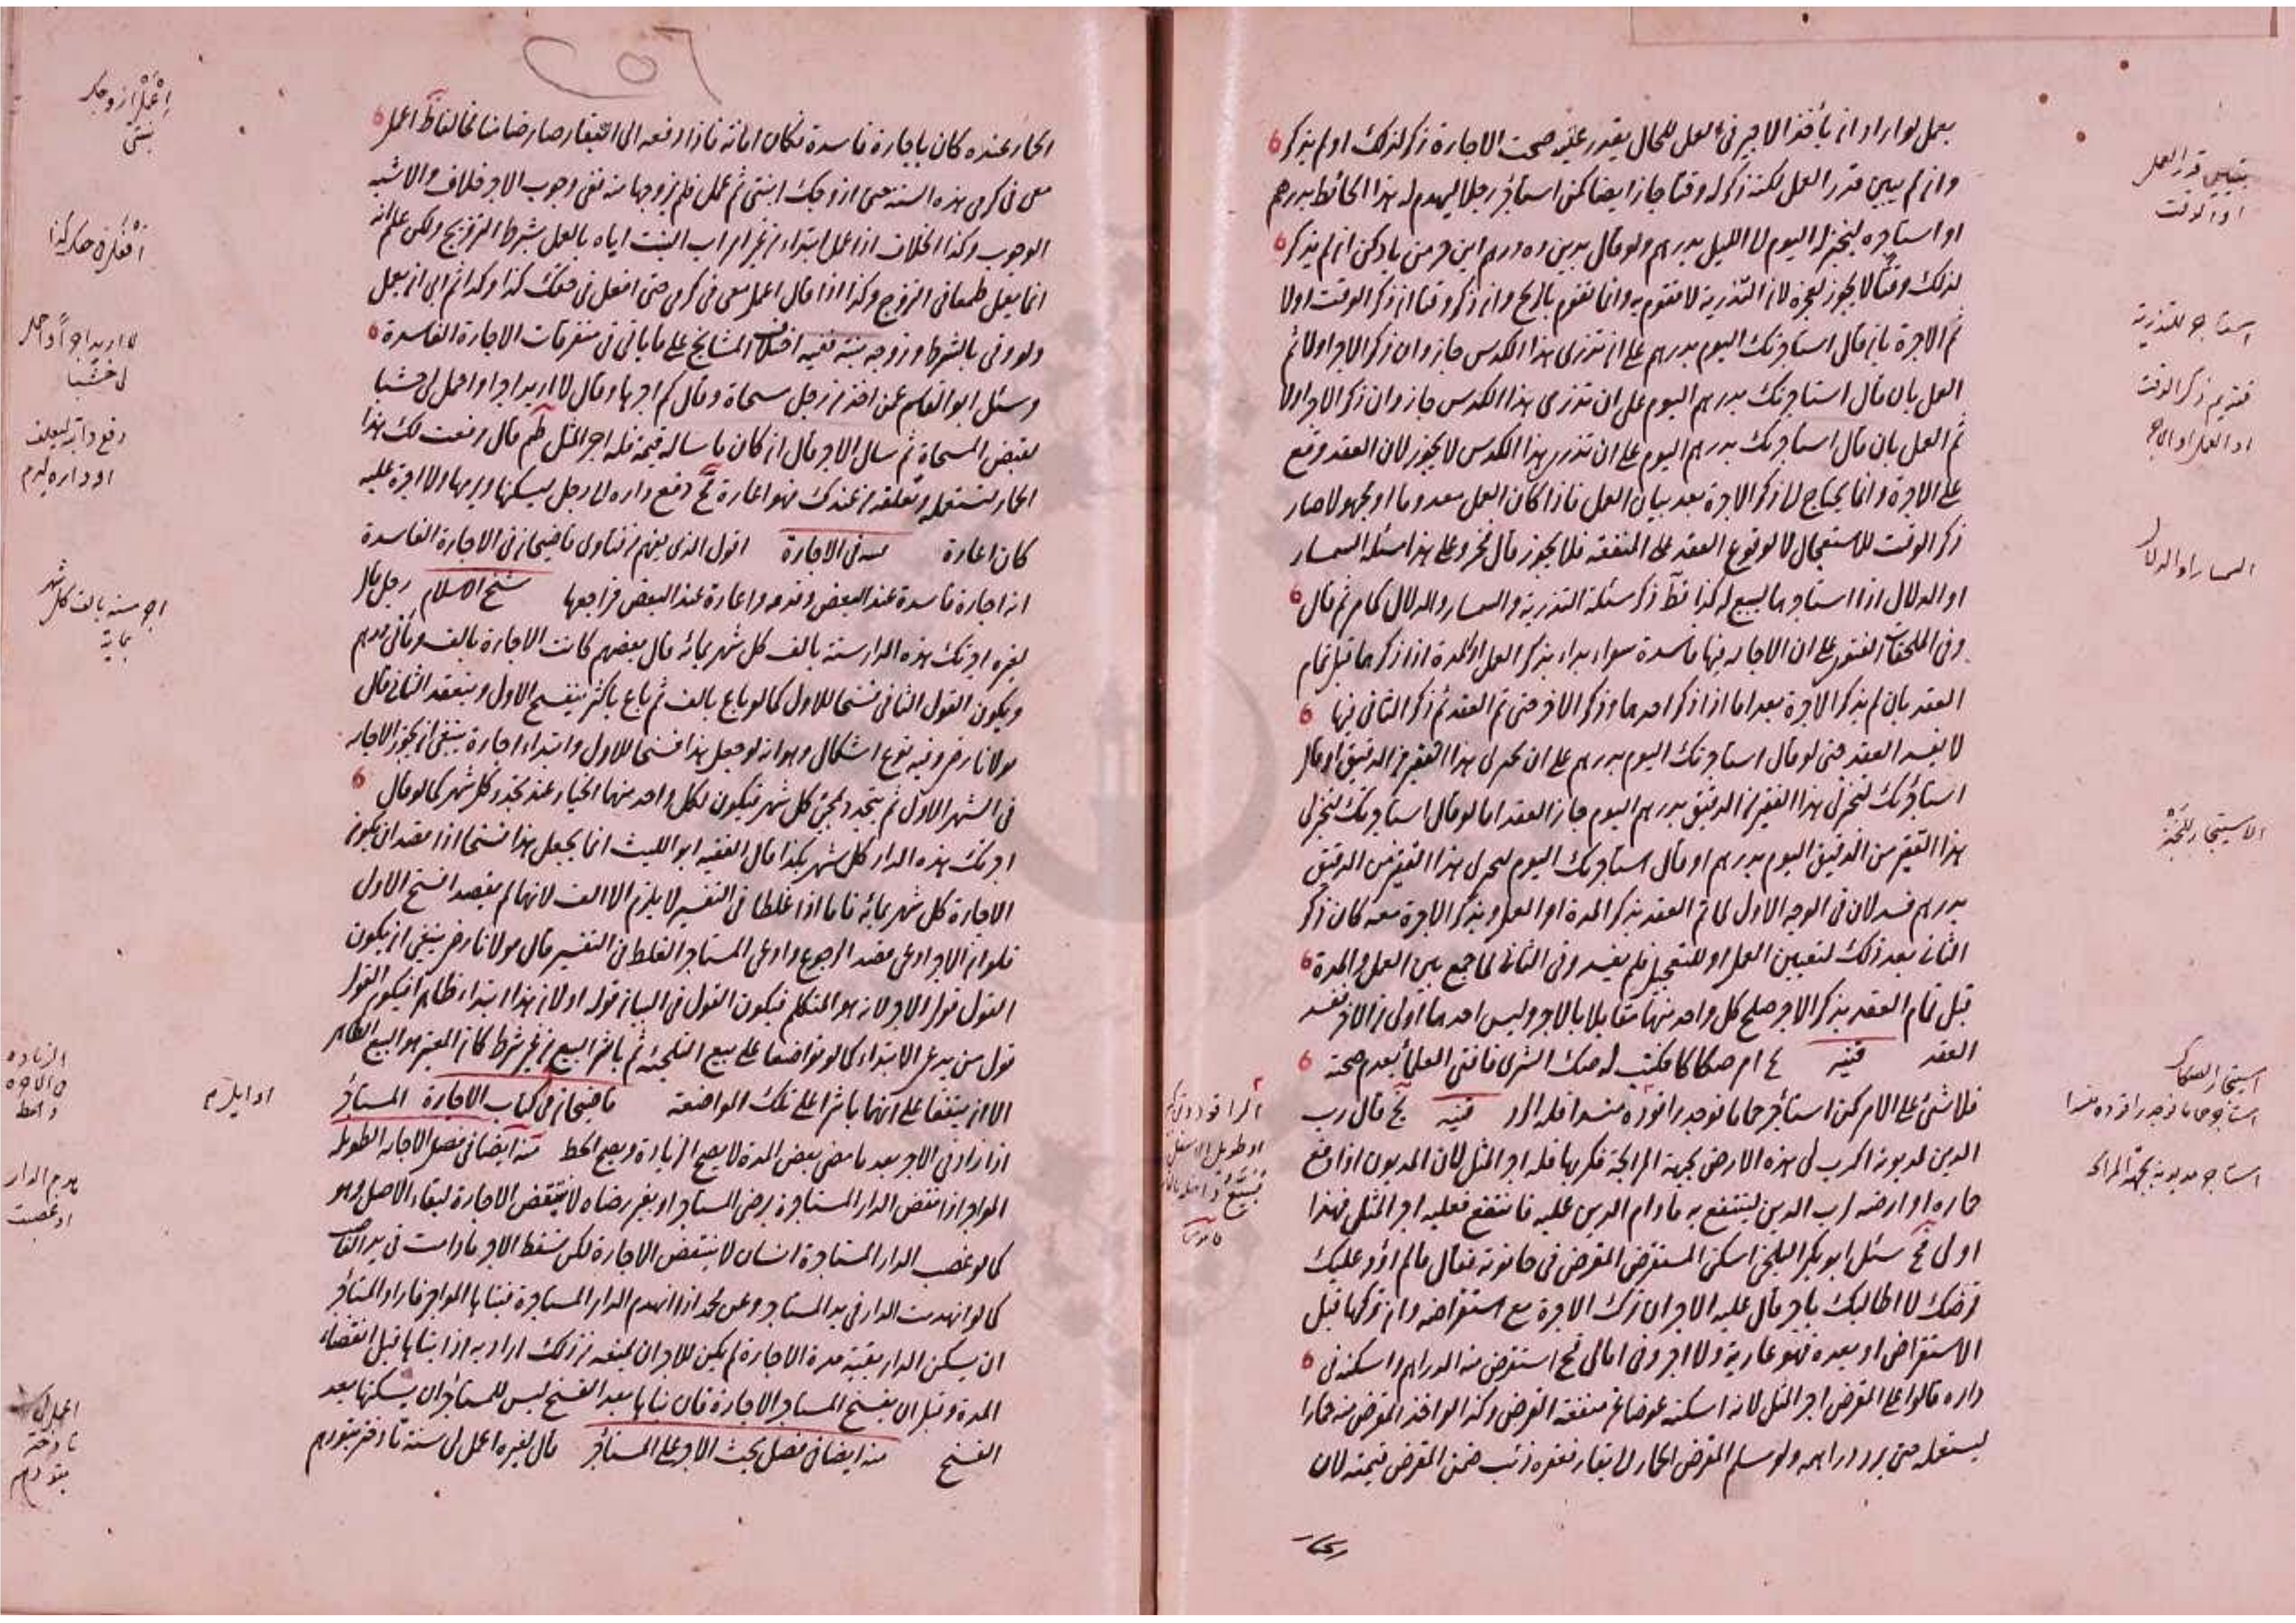 يعمل لو اراد ان يأخذ الاجير في العمل للحال يقدر عليه صحت الاجارة ذكر لذلك او لم يذكر
وان لم يبين قدر العمل لكنه ذكر له وقتا جاز ايضا كمن استأجر رجلا ليهدم له هذا الحائط بدرهم
او استأجره ليخبز له اليوم الى الليل بدرهم ولو قال بدين ده درهم اين خرمن باد كن ان لم يذكر
لذلك وقتا لا يجوز لعجزه لان التذرية لا تقوم به وانما تقوم بالريح وان ذكر وقتا ان ذكر الوقت اولا
ثم الاجرة بان قال استأجرتك اليوم بدرهم على ان تذري هذا الكدس جاز وان ذكر الاجر اولا ثم
العمل بان قال استأجرتك بدرهم اليوم على ان تذري هذا الكدس جاز وان ذكر الاجر اولا
ثم العمل بان قال استأجرتك بدرهم اليوم على ان تذري هذا الكدس لا يجوز لان العقد وقع
على الاجرة وانما يحتاج الى ذكر الاجرة بعد بيان العمل فاذا كان العمل معدوما او مجهولا صار
ذكر الوقت للاستعجال لا لوقوع العقد على المنفعة فلا يجوز قال فخر وعلى هذا مسئلة السمسار
او الدلال اذا استأجرهما ليبيع له كذا قط ذكر مسئلة التذرية والسمسار والدلال كما مر ثم قال
وفي الملحقات الفتوى على ان الاجارة فيها فاسدة سواء بداء بذكر العمل او المدة اذا ذكرهما قبل تمام
العقد بان لم يذكر الاجرة بعد اما اذا ذكر احدهما وذكر الاخر حتى تم العقد ثم ذكر الثاني فيها
لا يفسد العقد حتى لو قال استأجرتك اليوم بدرهم على ان تخبز لي هذا القفيز من الدقيق او قال
استأجرتك لتخبز لي هذا القفيز من الدقيق بدرهم اليوم جاز العقد اما لو قال استأجرتك لتخبز لي
هذا القفيز من الدقيق اليوم بدرهم او قال استأجرتك اليوم لتخبز لي هذا القفيز من الدقيق
بدرهم فسد لان في الوجه الاول لما تم العقد بذكر المدة او العمل وبذكر الاجرة معه كان ذكر
الثاني بعد ذلك لتعيين العمل او للتعجيل فلم يفسد وفي الثاني لما جمع بين العمل والمدة
قبل تمام العقد بذكر الاجر صلح كل واحد منهما مقابلا بالاجر وليس احدهما اولى من الاخر ففسد
العقد قنيه امر صكاكا فكتب له صك الشرى فافتى العلماء بعدم صحته
فلا شئ على الامر كمن استأجر حاما فوجد قنيه قال رب
الدين لمديونه اكرب لي هذه الارض بجهة المرابحة فكربها فله اجر المثل لان المديون اذا دفع
حماره او ارضه لرب الدين لينتفع به مادام الدين عليه فانتفع فعليه اجر المثل فهذا
اولى سئل ابو بكر البلخي اسكن المستقرض المقرض في حانوته فقال مالم اؤد عليك
قرضك لا اطالبك باجر قال عليه الاجر ان ترك الاجرة مع استقراضه وان تركها قبل
الاستقراض او بعده فهو عارية ولا اجر وفي امالي استقرض منه الدراهم واسكنه في
داره قالوا على المقرض اجر المثل لانه اسكنه عوضا عن منفعة القرض وكذا لو اخذ المقرض منه حمارا
ليستعمله حتى يرد دراهمه ولو سلم المقرض الحمار الى بقار فعقره ذئب ضمن المقرض قيمته لان
الحمار
بتبيين قدر العمل
او الوقت
استأجر للتذرية
تقديم ذكر الوقت
او العمل او الاجر
السمسار او الدلال
الاستيجار للخبز
استيجار الصكاك
استأجر مديونه بجهة المرابحة
الحمار عنده كان باجارة فاسدة فكان امانة فاذا دفعه الى البقار صار ضامنا مخالفا اعمل
معي في كرمي هذه السنة حتى ازوجك ابنتي ثم عمل فلم يزوجها منه ففي وجوب الاجر خلاف والاشبه
الوجوب وكذا الخلاف اذا عمل ابتداء من غير امر اب البنت اياه بالعمل بشرط التزويج ولكن علم انه
انما يعمل طمعا في التزوج وكذا اذا قال اعمل معي في كرمي حتى افعل في حقك كذا وكذا ثم ابى ان يعمل
ولو وفى بالشرط وزوجه بنته ففيه اختلاف المشايخ على ما ياتي في متفرقات الاجارة الفاسدة
وسئل ابو القاسم عمن اخذ من رجل مسحاة وقال كم اجرها وقال لا اريد اجرا واحمل لي خشبا
بقبض المسحاة ثم سأل الاجر قال ان كان ما سأله قيمة فله اجر المثل قال دفعت لك هذا
الحمار لتستعمله وتعلفه من عندك فهو اعارة دفع داره الى رجل ليسكنها ويرمها ولا اجرة عليه
كان اعارة في الاجارة اقول الذي يفهم من فتاوى قاضيخان في الاجارة الفاسدة
انه اجارة فاسدة عند البعض واعارة عند البعض فراجعها شيخ الاسلام رجل قال
لغيره اجرتك هذه الدار سنة بالف كل شهر بمائة قال بعضهم كانت الاجارة بالف ومأتي درهم
ويكون القول الثاني فسخا للاول كما لو باع بالف ثم باع باكثر ينفسخ الاول وينعقد الثاني قال
مولانا رض وفيه نوع اشكال وهو انه لو جعل هذا فسخا للاول وابتداء اجارة ينبغي ان يجوز الاجارة
في الشهر الاول ثم يتجدد بمجئ كل شهر فيكون لكل واحد منهما الخيار عند تجدد كل شهر كما لو قال
اجرتك هذه الدار كل شهر بكذا قال الفقيه ابو الليث انما يجعل هذا فسخا اذا قصد ان يكون
الاجارة كل شهر بمائة فاما اذا غلطا في التفسير لا يلزم الا الالف لانهما لم يقصدا فسخ الاول
فلو ان الاجر ادعى قصد الرجوع وادعى المستأجر الغلط في التفسير قال مولانا رض ينبغي ان يكون
القول قول الاجر لانه هو المتكلم فيكون القول في البيان قوله او لان هذا ابتداء ظاهرا فيكون القول
قول من يدعي الابتداء كما لو تواضعا على بيع التلجئة ثم باشرا البيع من غير شرط كان المعتبر هو البيع الظاهر
الا ان يتفقا على انهما باشرا على تلك المواضعة قاضيخان في كتاب الاجارة المستأجر
اذا زاد في الاجر بعد ما مضى بعض المدة لا يصح الزيادة ويصح الحط منه ايضا في فصل الاجارة الطويلة
المواجر اذا نقض الدار المستأجرة برضى المستأجر او بغير رضاه لا ينتقض الاجارة لبقاء الاصل وهو
كما لو غصب الدار المستأجرة انسان لا ينتقض الاجارة لكن سقط الاجر مادامت في يد الغاصب
كما لو انهدمت الدار في يد المستأجر وعن محمد اذا انهدم الدار المستأجرة فبناها المواجر فاراد المستأجر
ان يسكن الدار بقية مدة الاجارة لم يكن للاجر ان يمنعه من ذلك اراد به اذا بناها قبل انقضاء
المدة وقبل ان يفسخ المستأجر الاجارة فان بناها بعد الفسخ ليس للمستأجر ان يسكنها بعد
الفسخ منه ايضا في فصل يجب الاجر على المستأجر قال لغيره اعمل لي سنة تا دختر بتو دهم
اعمل ازوجك
بنتي
افعل في حقك كذا
لا اريد اجرا واحمل
لي خشبا
دفع دابته ليعلف
او داره ليرم
اجر سنة بالف كل شهر
بمائة
الزيادة
في الاجرة
والحط
هدم الدار
او غصبت
اعمل لي
تا دختر
بتو دهم